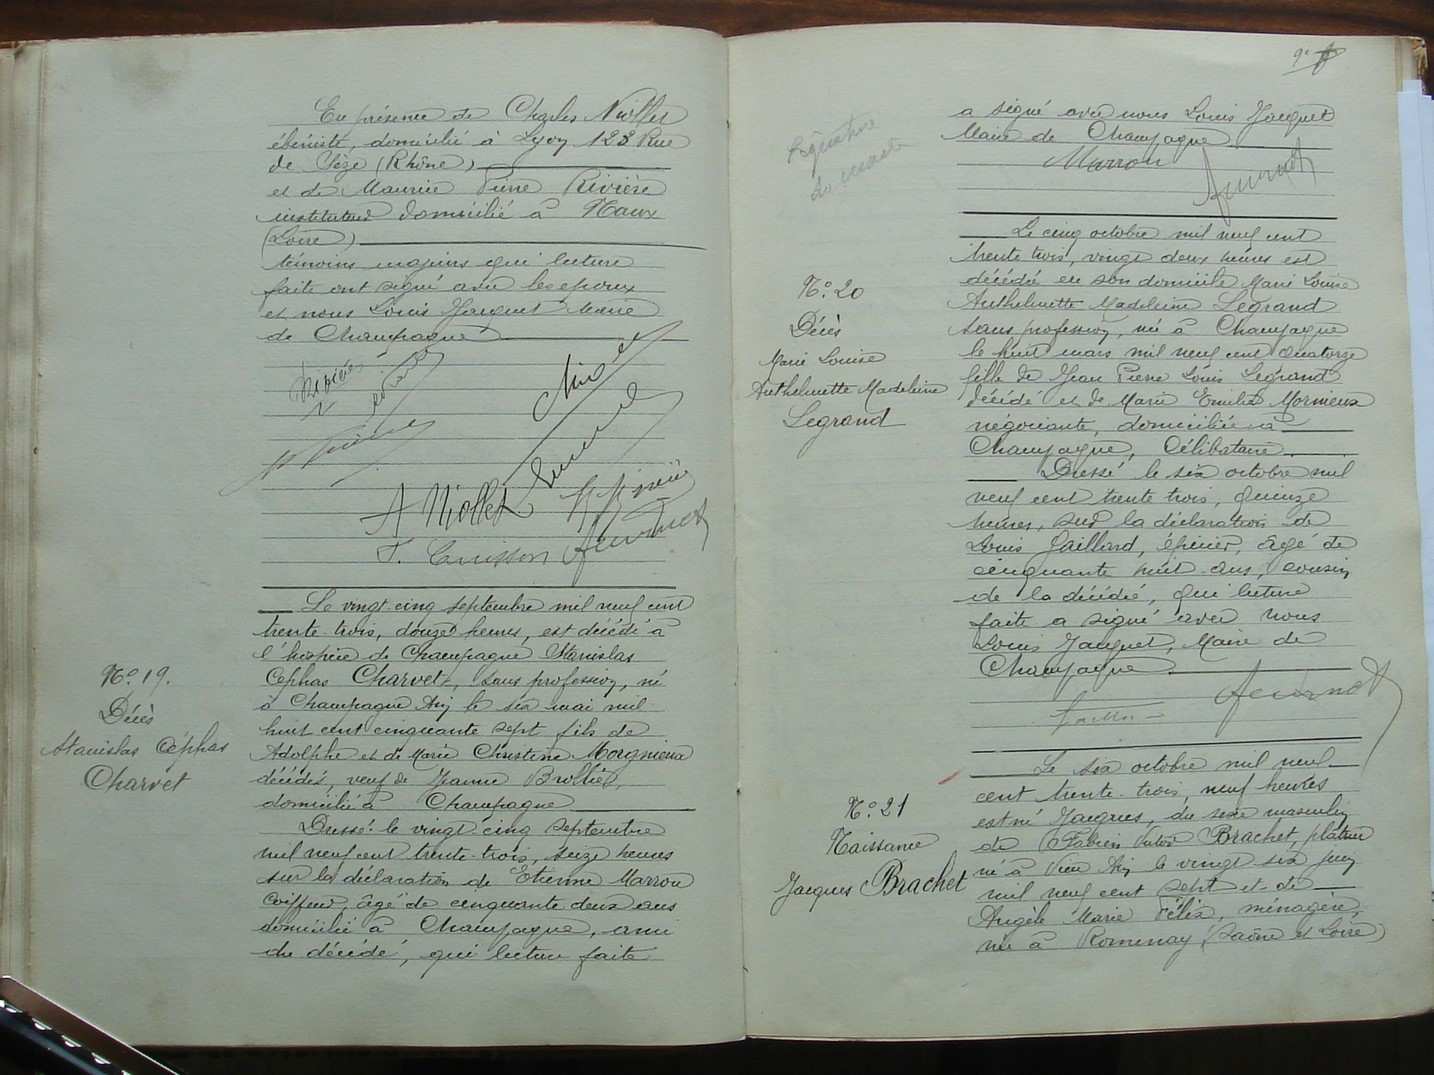 En présence de Charles Niollet
ébéniste, domicilié à Lyon 123 Rue
de Sèze (Rhône)
et de Maurice Pierre Rivière
instituteur domicilié à Naux
(Loire)
témoins majeurs qui lecture
faite ont signé avec les époux
et nous Louis Jacquet Maire
de Champagne
Rivière
A Niollet
M Rivière
T. Cuisson
N° 19.
Décès
Stanislas Céphas
Charvet
Le vingt cinq septembre mil neuf cent
trente-trois, douze heures, est décédé à
l'hospice de Champagne Stanislas
Cephas Charvet, sans profession, né
à Champagne Ain le six mai mil
huit cent cinquante sept fils de
Adolphe et de Marie Christine Morgnieux
décédés, veuf de Jeanne
domicilié à Champagne
Dressé le vingt cinq septembre
mil neuf cent trente-trois, seize heures
sur la déclaration de Etienne Marron
coiffeur, âgé de cinquante deux ans
domicilié à Champagne, ami
du décédé, qui lecture faite
9e
Signature
du maire
a signé avec nous Louis Jacquet
Maire de Champagne
Marron
N° 20
Décès
Marie Louise
Anthelmette Madeleine
Legrand
Le cinq octobre mil neuf cent
trente trois, vingt deux heures est
décédée en son domicile Marie Louise
Anthelmette Madeleine Legrand
sans profession, née à Champagne
le huit mars mil neuf cent quatorze
fille de Jean Pierre Louis Legrand
décédé et de Marie Emilie Mornieux
négociante, domiciliée à
Champagne, Célibataire.
Dressé le six octobre mil
neuf cent trente trois, quinze
heures, sur la déclaration de
Louis Gaillard, épicier, âgé de
cinquante huit ans, cousin
de la décédée, qui lecture
faite a signé avec nous
Louis Jacquet, Maire de
Champagne
N° 21
Naissance
Jacques Brachet
Le six octobre mil neuf
cent trente-trois, neuf heures
est né Jacques, du sexe masculin
de Fabien Victor Brachet, plâtrier
né à Vieu Ain le vingt six juin
mil neuf cent sept et de
Angèle Marie Félix, ménagère,
née à Romenay (Saône et Loire)